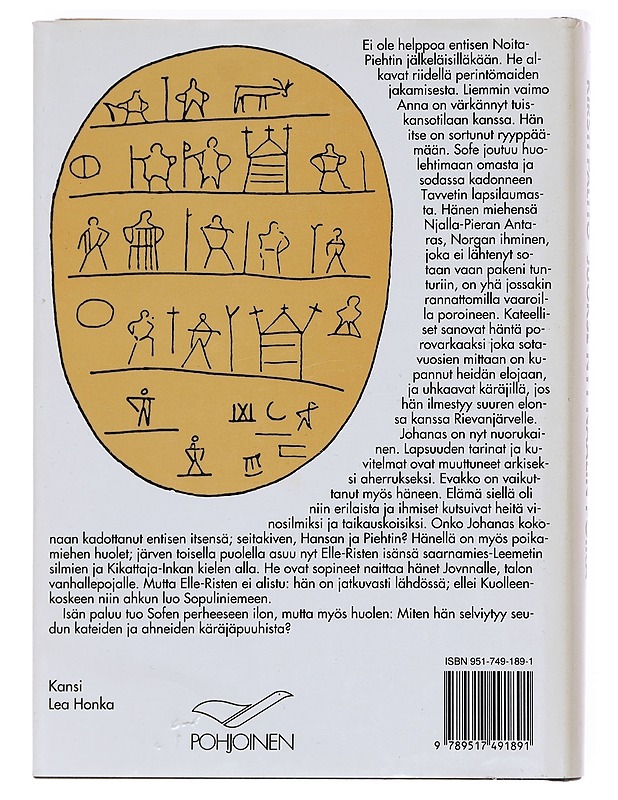 Ei ole helppoa entisen Noita-
Piehtin jälkeläisilläkään. He al-
kavat riidellä perintömaiden
jakamisesta. Liemmin vaimo
Anna on värkännyt tuis-
kansotilaan kanssa. Hän
itse on sortunut ryyppää-
mään. Sofe joutuu huo-
lehtimaan omasta ja
sodassa kadonneen
Tavvetin lapsilaumas-
ta. Hänen miehensä
Njalla-Pieran Anta-
ras, Norgan ihminen,
joka ei lähtenyt so-
taan vaan pakeni tun-
turiin, on yhä jossakin
rannattomilla vaaroil-
la poroineen. Kateelli-
set sanovat häntä po-
rovarkaaksi joka sota-
vuosien mittaan on ku-
pannut heidän elojaan,
ja uhkaavat käräjillä, jos
hän ilmestyy suuren elon-
sa kanssa Rievanjärvelle.
Johanas on nyt nuorukai-
nen. Lapsuuden tarinat ja ku-
vitelmat ovat muuttuneet arkisek-
si aherrukseksi. Evakko on vaikut-
tanut myös häneen. Elämä siellä oli
niin erilaista ja ihmiset kutsuivat heitä vi-
nosilmiksi ja taikauskoisiksi. Onko Johanas koko-
naan kadottanut entisen itsensä; seitakiven, Hansan ja Piehtin? Hänellä on myös poika-
miehen huolet; järven toisella puolella asuu nyt Elle-Risten isänsä saarnamies-Leemetin
silmien ja Kikattaja-Inkan kielen alla. He ovat sopineet naittaa hänet Jovnnalle, talon
vanhallepojalle. Mutta Elle-Risten ei alistu: hän on jatkuvasti lähdössä; ellei Kuolleen-
koskeen niin ahkun luo Sopuliniemeen.
Isän paluu tuo Sofen perheeseen ilon, mutta myös huolen: Miten hän selviytyy seu-
dun kateiden ja ahneiden käräjäpuuhista?
Kansi
Lea Honka
POHJOINEN
ISBN 951-749-189-1
9 789517 491891